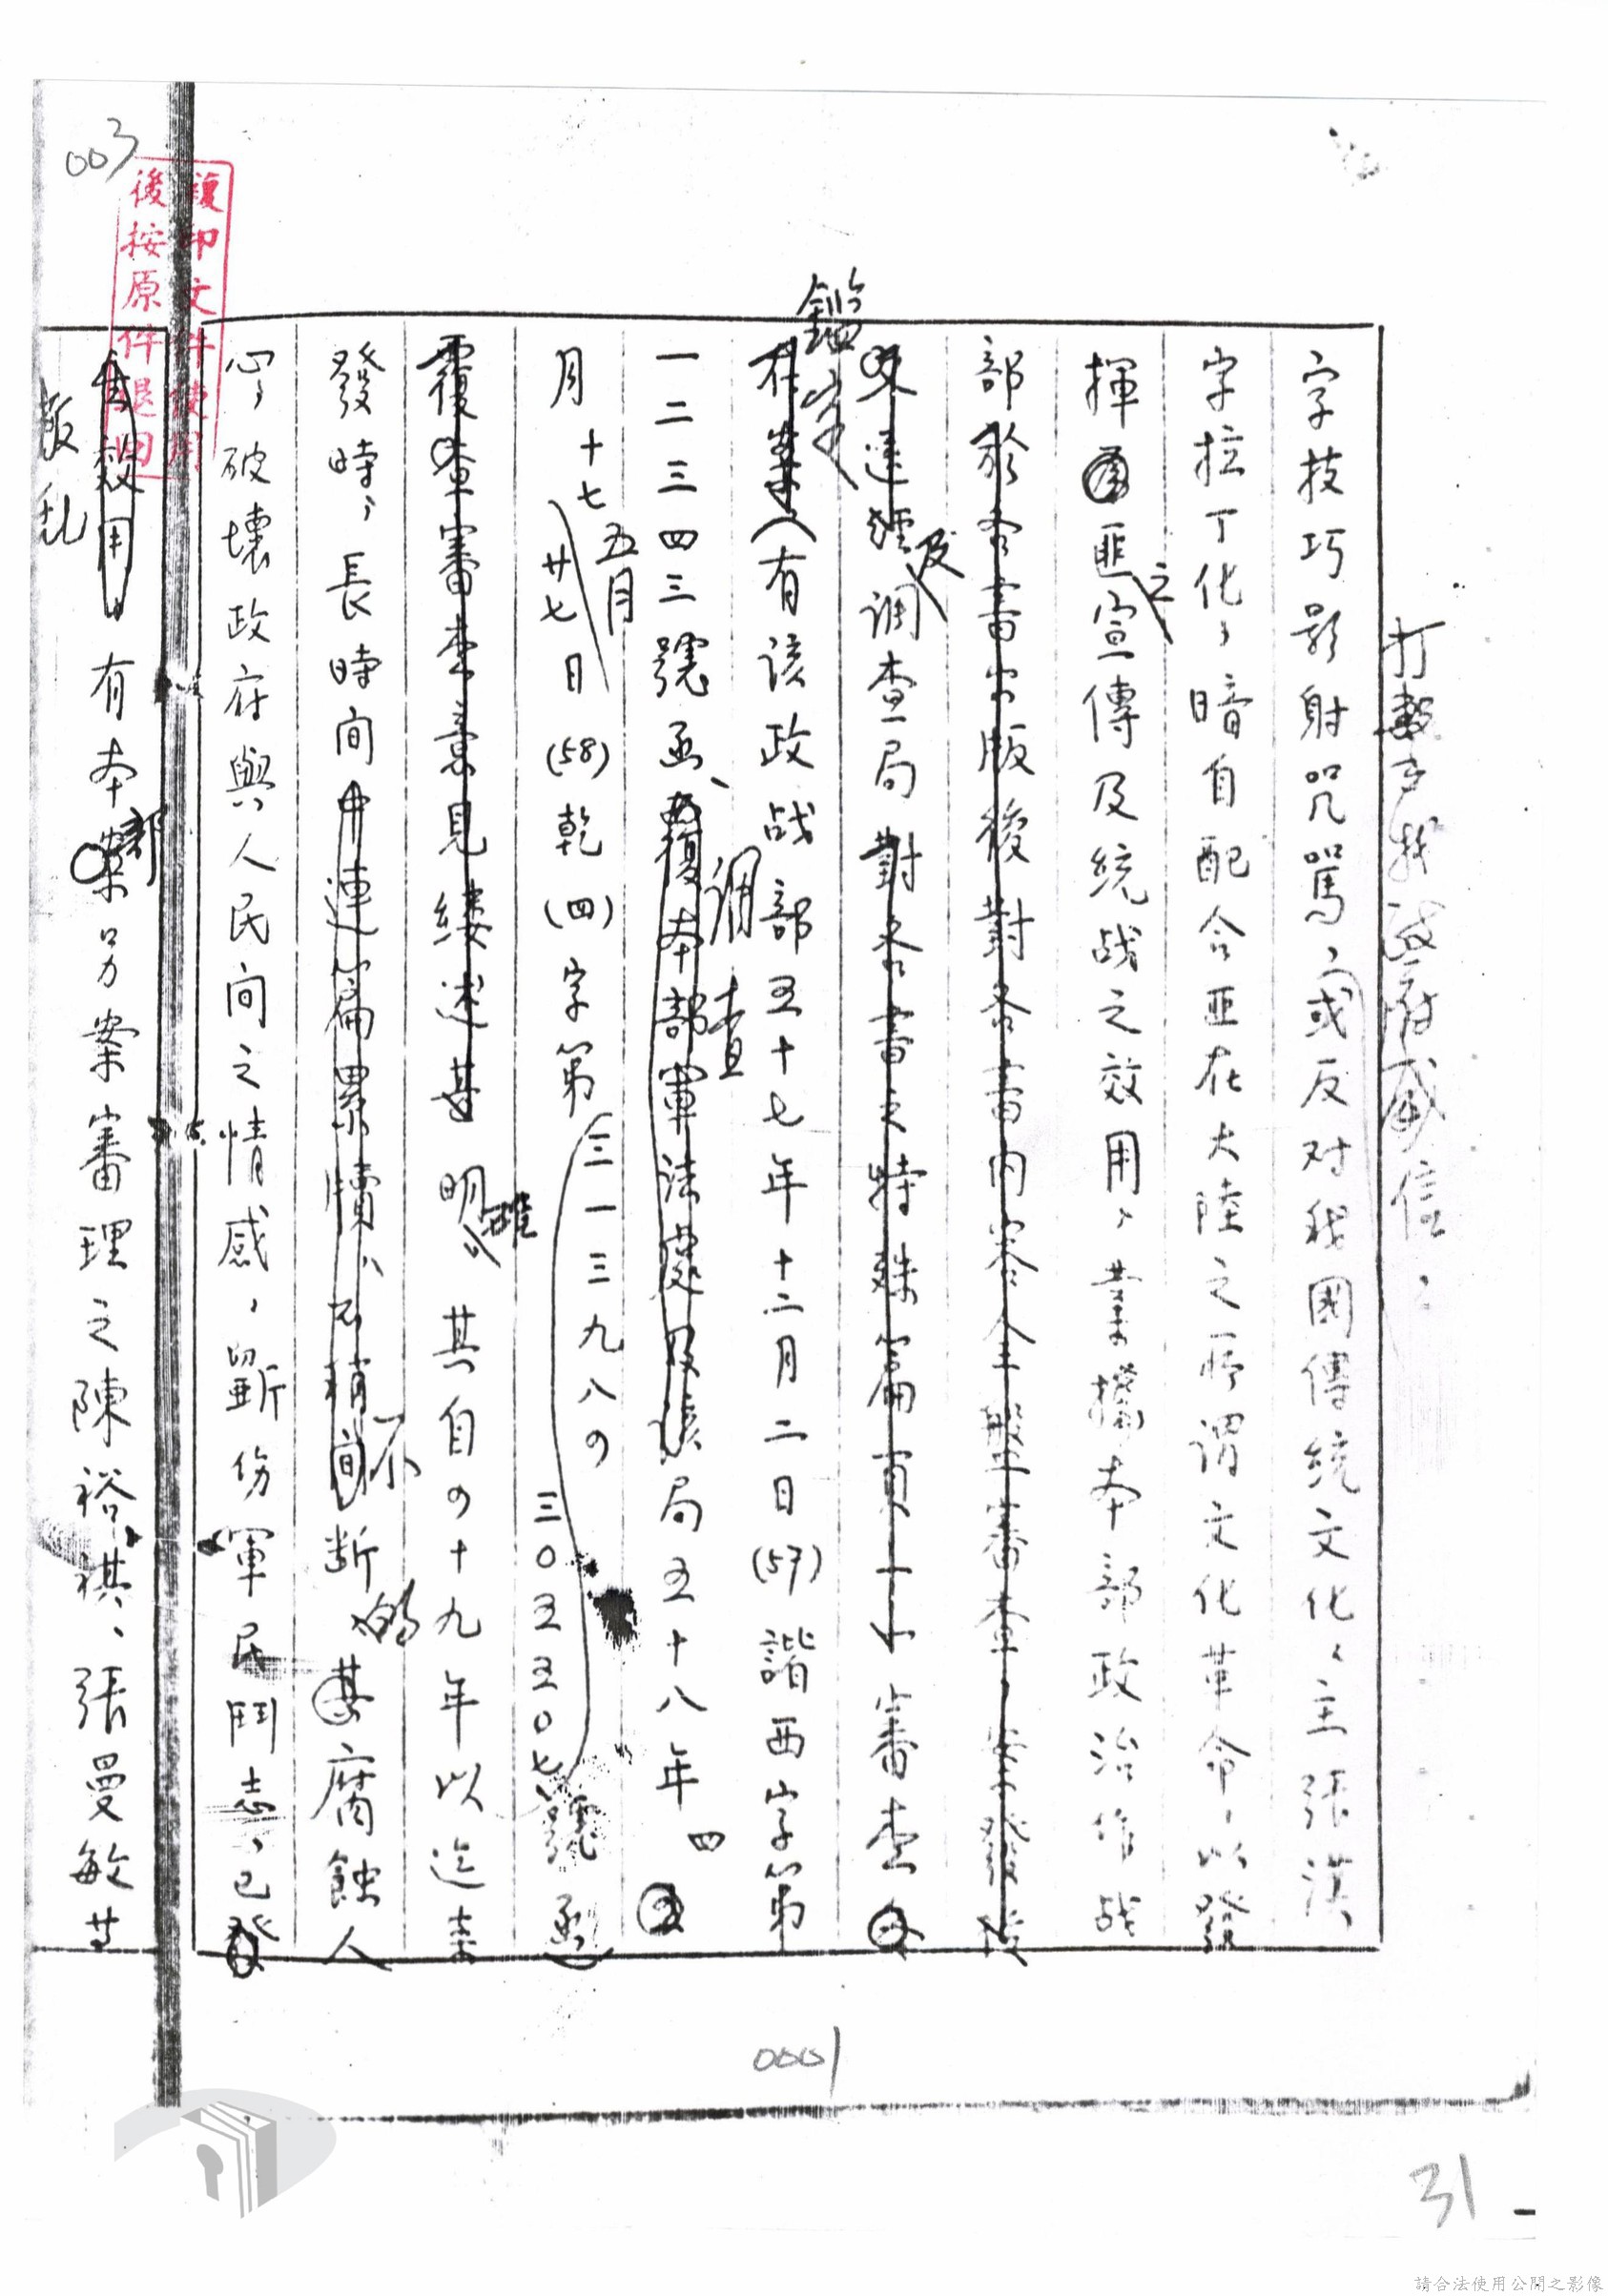 003
複印文件使用
後按原件退回
打擊我政府威信，
字技巧影射咒罵，或反对我國傳統文化，主張漢
字拉丁化，暗自配合匪在大陸之所謂文化革命，以發
揮匪宣傳及統战之效用，業據本部政治作战
之
部於各書出版後對各書內容人
鑑定
及调查局對各書之特殊篇頁審查
在案（有该政战部五十七年十二月二日(57)諧西字第
调查
一二三四三號函、覆本部軍法處及该局五十八年四
五月
月十七廿七日(58)乾(四)字第三一三九八四
三〇五五〇七號函）
覆審查意見縷述甚明確
其自四十九年以迄案
發時，長時间中連篇累牘，不稍间断
不
的
其腐蝕人
心，破壞政府與人民间之情感，斲伤軍民鬥志，已發
效用，有本案另案審理之陳裕祺、張曼敏等
部
叛乱
0001
31
請合法使用公開之影像